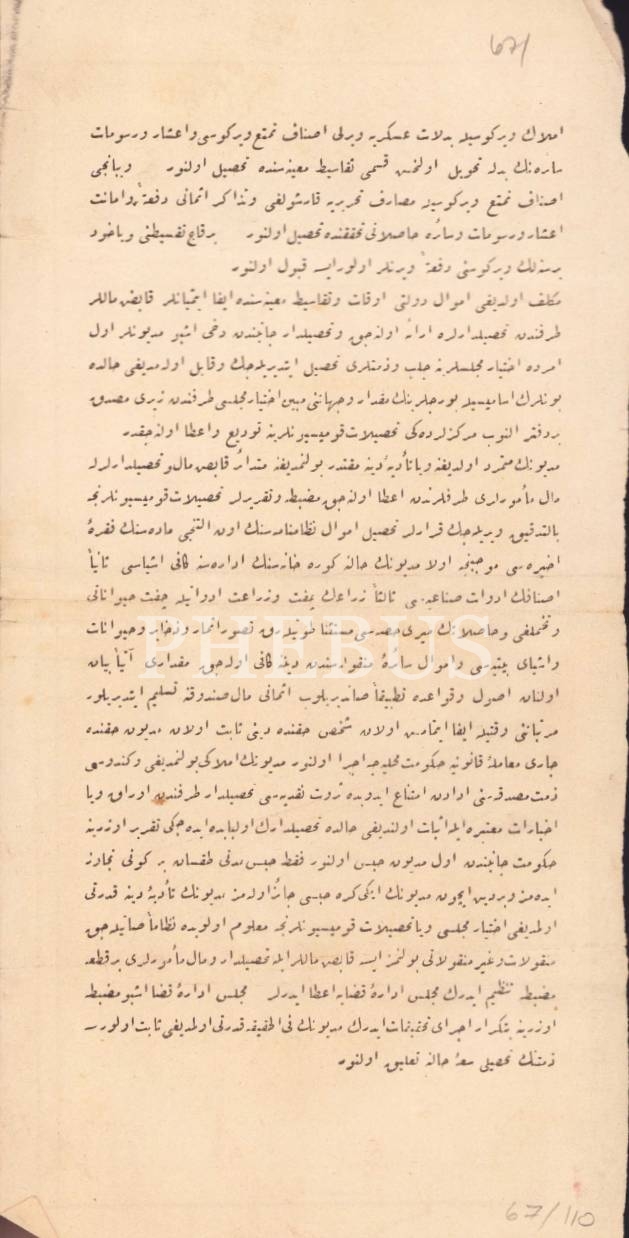 67/
املاك ويركوسيله بدلات عسكريه ويرلى اصناف تمتع ويركوسى واعشار ورسومات
سائره‌نك بدله تحويل اولنمش قسمى تقاسيط معينه‌سنده تحصيل اولنور ويبانجى
اصناف تمتع ويركوسيله مصارف تحريريه قارشولغى وتذاكر اثمانى دفعةً وامانت
اعشار ورسومات وسائره حاصلاتى تحققنده تحصيل اولنور برقاچ تقسيطنى وياخود
برسنه‌لك ويركوسنى دفعةً ويرنلر اولورايسه قبول اولنور
مكلف اولديغى اموال دولتى اوقات وتقاسيط معينه‌سنده ايفا ايتميانلر قابض ماللر
طرفندن تحصيلدارلره ارائه اولنه‌جق وتحصيلدار جانبندن دخى اشبو مديونلر اول
امرده اختيار مجلسلرينه جلب وذمتلرى تحصيل ايتديريله‌جك وقابل اوله‌مديغى حالده
بونلرك اساميسيله بورجلرينك مقدار وجهاتنى مبين اختيار مجلسى طرفندن زيرى مصدق
بردفتر مركزلرده‌كى تحصيلات قوميسيونلرينه توديع واعطا اولنه‌جقدر
مديونك متمرد اولديغنه وياتأديهٔ دينه مقتدر بولنمديغنه متدائر قابض مال وتحصيلدارلرله
مال مأمورلرى طرفلرندن اعطا اولنه‌جق مضبطه وتقريرلر تحصيلات قوميسيونلرنجه
بالتدقيق ويريله‌جك قرارلر تحصيل اموال نظامنامه‌سنك اون التنجى ماده‌سنك فقرهٔ
اخيره‌سى موجبنجه اولا مديونك حالنه كوره خانه‌سنك اداره‌سنه كافى اشياسى ثانياً
اصنافك ادوات صناعيه‌سى ثالثاً زراعك چفت وزراعت ادواتيله چفت حيواناتى
وتخملغى وحاصلاتك ميرى حصه‌سى مستثنا طوتيله‌رق قصور اثمار وذخاير وحيوانات
واشياى بيتيه‌سى واموال سائرهٔ منقوله‌سندن دينه كافى اوله‌جق مقدارى آتياً بيان
اولنان اصول وقواعده تطبيقاً صاتديريلوب اثمانى مال صندوقنه تسليم ايتديريلور
مرتباتنى وقتيله ايفا ايتمامش اولان شخص حقنده دينى ثابت اولان مديون حقنده
جارى معاملهٔ قانونيه حكومت محليه‌جه اجرا اولنور مديونك املاكى بولنمديغى وكندوسى
ذمت مصدقه‌سنى ادادن امتناع ايدوبده ثروت نقديه‌سى تحصيلدار طرفندن اوراق ويا
اخبارات معتبره ايله اثبات اولنديغى حالده تحصيلدارك اولبابده ايده‌جكى تقرير اوزرينه
حكومت جانبندن اول مديون حبس اولنور فقط حبس مدتى طقسان بر كونى تجاوز
ايده‌مز وبردين ايچون مديونك ايكى كره حبسى جائز اوله‌مز مديونك تأديهٔ دينه قدرتى
اولمديغى اختيار مجلسى وياتحصيلات قوميسيونلرنجه معلوم اولوبده نظاماً صاتيله‌جق
منقولات وغير منقولاتى بولنمز ايسه قابض ماللر ايله تحصيلدار ومال مأمورلرى برقطعه
مضبطه تنظيم ايدرك مجلس ادارهٔ قضايه اعطا ايدرلر مجلس ادارهٔ قضا اشبو مضبطه
اوزرينه تكرار اجراى تحقيقات ايدرك مديونك فى الحقيقه قدرتى اولمديغى ثابت اولورسه
ذمتنك تحصيلى سعهٔ حالنه تعليق اولنور
PHEBUS
67/110